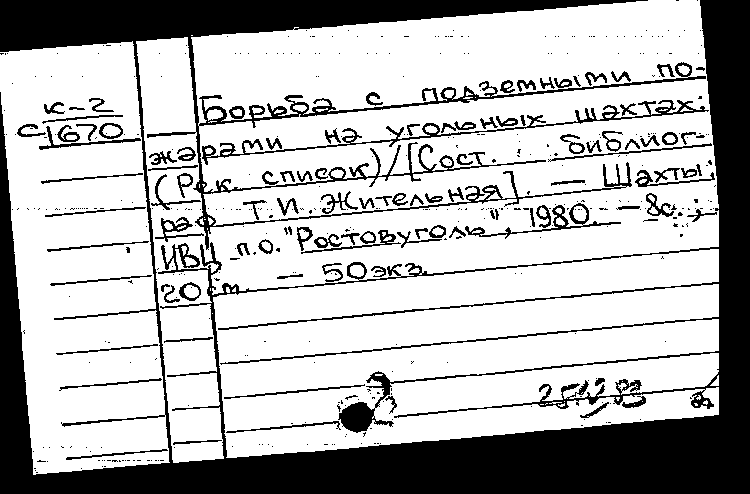 К-2
С1670
Борьба с подземными по-
жарами на угольных шахтах:
(Рек. список)/[Сост. библиог-
раф Т.И. Жительная]. — Шахты:
ИВЦ п.о. "Ростовуголь", 1980. — 8с.;
20 см. — 50экз.